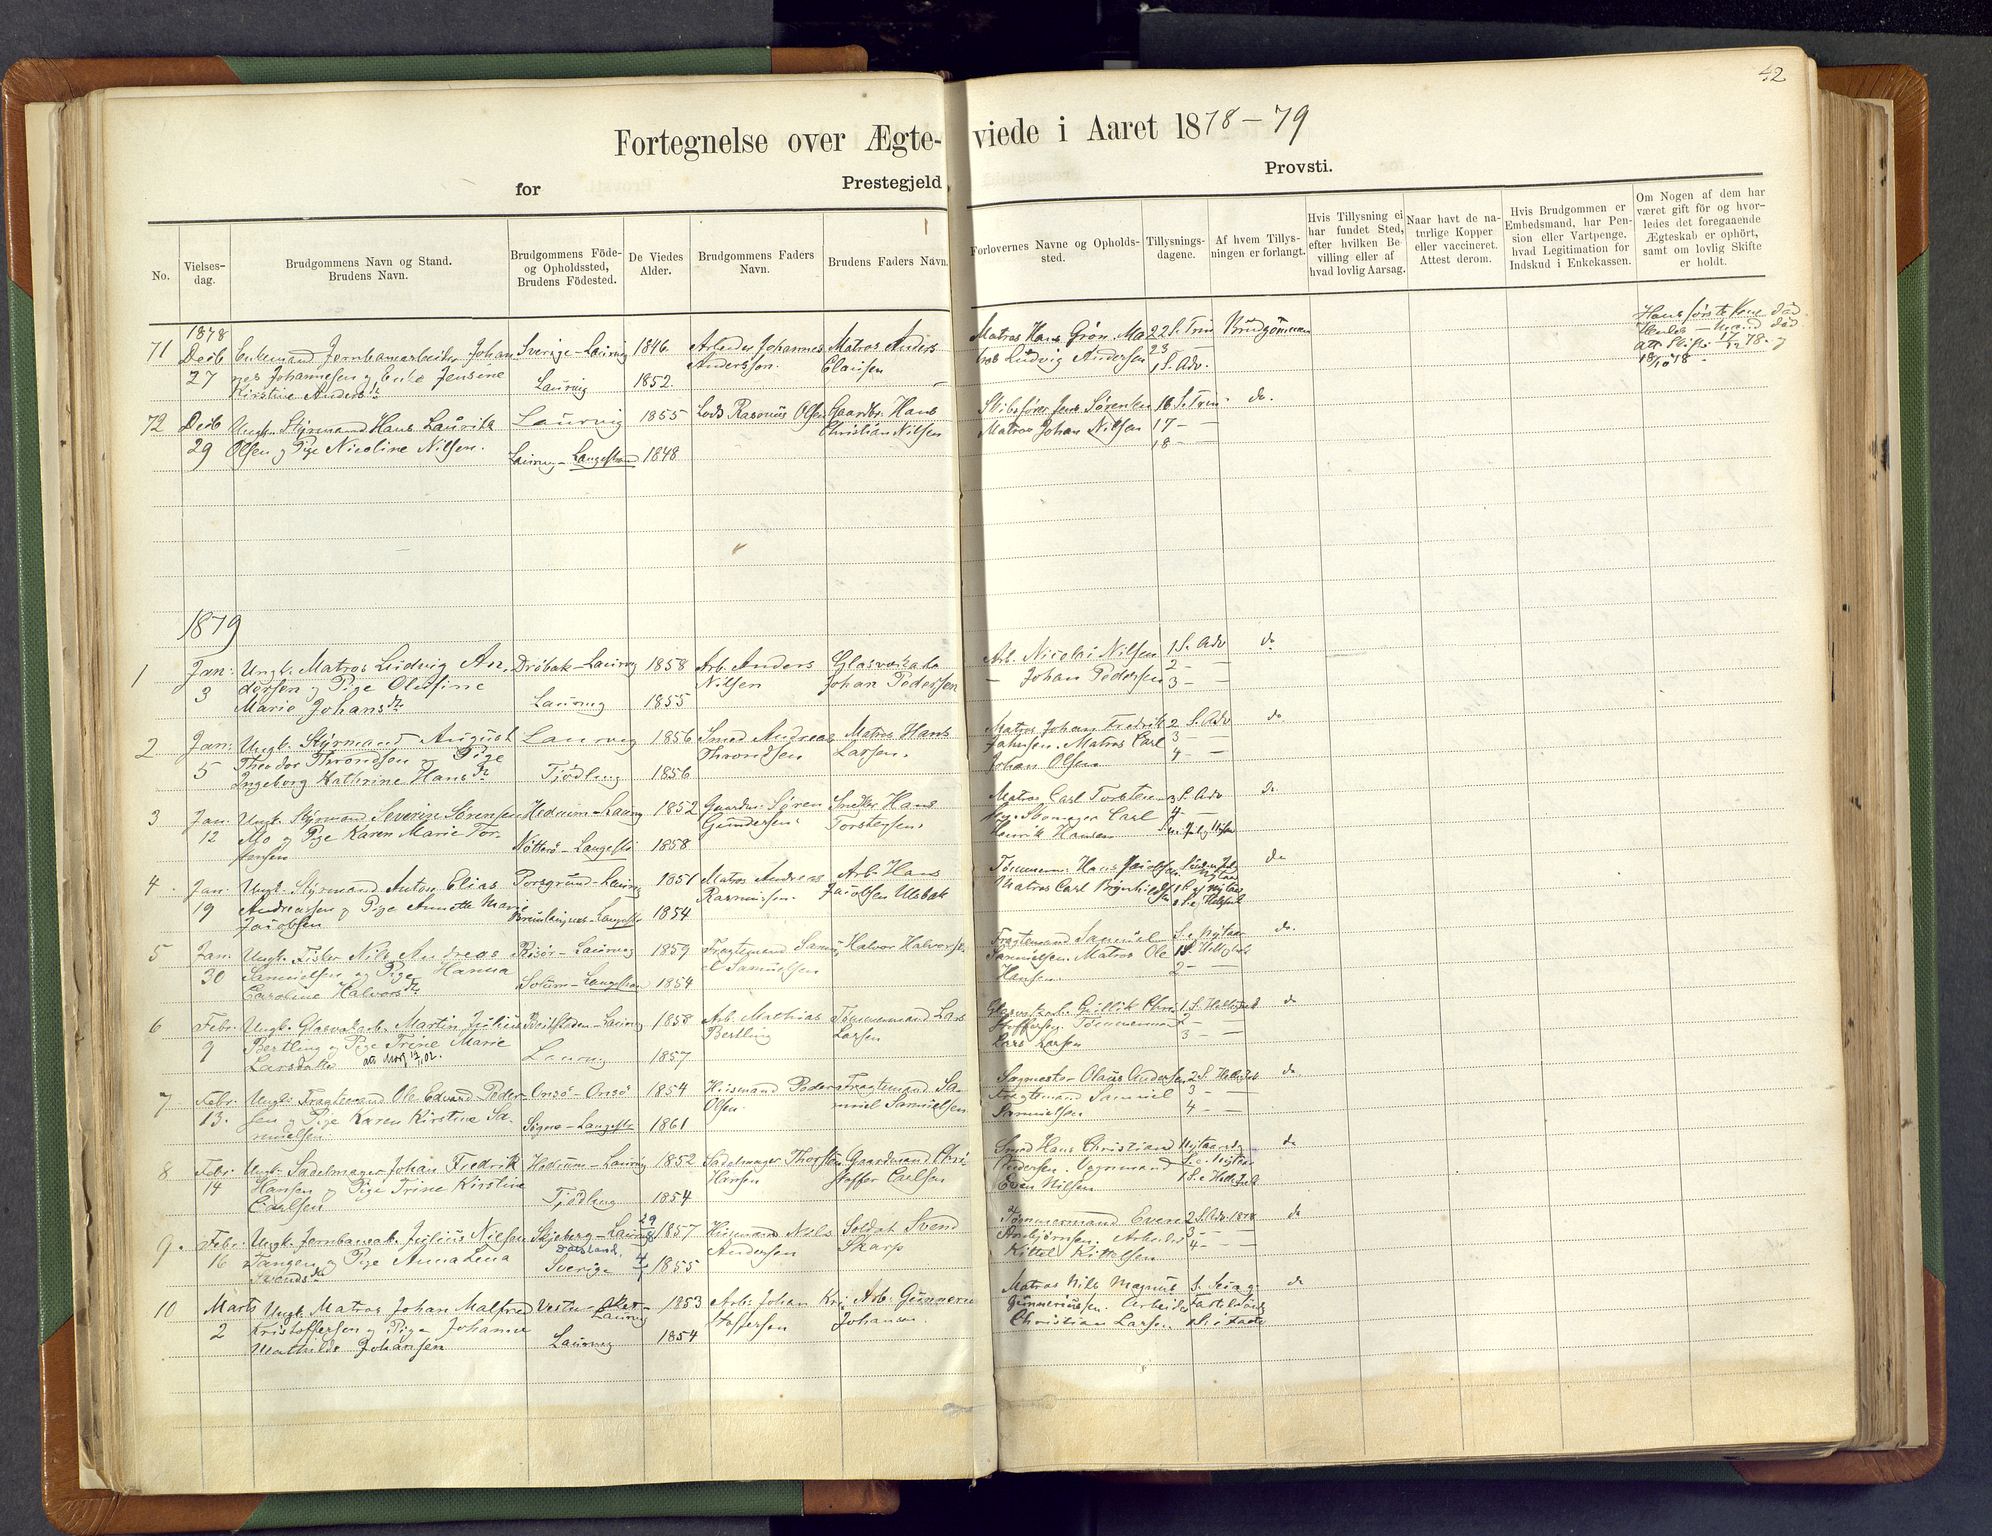 42
Fortegnelse over Ægte-viede i Aaret 1878-79
for Prestegjeld Provsti.
No.
Vielses-
dag.
Brudgommens Navn og Stand.
Brudens Navn.
Brudgommens Föde-
og Opholdssted,
Brudens Födested.
De Viedes
Alder.
Brudgommens Faders
Navn.
Brudens Faders Navn.
Forlovernes Navne og Opholds-
sted.
Tillysnings-
dagene.
Af hvem Tillys-
ningen er forlangt.
Hvis Tillysning ei
har fundet Sted,
efter hvilken Be-
villing eller af
hvad lovlig Aarsag.
Naar havt de na-
turlige Kopper
eller vaccineret.
Attest derom.
Hvis Brudgommen er
Embedsmand, har Pen-
sion eller Vartpenge,
hvad Legitimation for
Indskud i Enkekassen.
Om Nogen af dem har
været gift för og hvor-
ledes det foregaaende
Ægteskab er ophört,
samt om lovlig Skifte
er holdt.
1878
71 Decb 27
Enkemand Jernbanearbeider Johan
nes Johannesen og Enke Jensine
Kirstine Anders
Sverige-Laurvig 1846
Laurvig 1852.
Arbeider Johannes
Anderssøn.
Matros Anders
Clausen
Matros Hans Grøn. Ma
tros Ludvig Andersen
22 S. Trin
23 —
1 S. Adv.
Brudgommen
Hans første Kone död
Hendes — Mand död
72 Decb 29
Ungk. Styrmand Hans Lauritz
Olsen og Pige Nicoline Nilsen.
Laurvig 1855
Laurvig-Langestrand 1848
Lods Rasmus Olsen
Gaardbr. Hans
Christian Nilsen
Skibsfører Jens Sørensen
Matros Johan Nilsen
16 S. Trin.
17 —
18 —
do.
1879
1 Jan: 3
Ungk. Matros Ludvig An.
dersen og Pige Olufine
Marie Johansdtr
Dröbak-Laurvig 1858
Laurvig 1855
Arb. Anders
Nilsen
Glasværksarb
Johan Pedersen
Arb. Nicolai Nilsen
— Johan Pedersen
1 S. Adv
2 —
3 —
do
2 Jan: 5
Ungk. Styrmand August
Theodor Throndsen og Pige
Ingeborg Kathrine Hansdtr
Laurvig 1856
Tjödling 1856
Smed Andreas
Throndsen
Matros Hans
Larsen.
Matros Johan Fredrik
Jahnsen. Matros Carl
Johan Olsen
2 S. Adv
3 —
4 —
do
3 Jan. 12
Ungk. Styrmand Severin Sörensen
Mo og Pige Karen Marie Tor-
stensen
Hedrum-Laurvig 1852
Nötterö-Langestr 1858
Gaardm. Sören
Gundersen.
Snedker Hans
Torstensen.
Matros Carl Torsten
sen. Carl
Henrik Hansen
3 S. Adv
4 —
do
4 Jan. 19
Ungk. Styrmand Anton Elias
Andreassen og Pige Annette Marie
Jacobsen
Porsgrund-Laurvig 1851
Brunlagnes-Langestr 1854
Matros Andreas
Rasmussen.
Arb. Hans
Jacobsen Ulabæk
Tømmerm. Hans Jacobsen
Matros Carl
do
5 Jan. 30
Ungk. Fisker Nils Andreas
Samuelsen og Pige Hanna
Caroline Halvorsdtr
Risör-Laurvig 1859
Solum-Langestran 1854
Fragtemand Samu
el Samuelsen
Halvor Halvorsen
Fragtemand Samuel
Samuelsen. Matros Ole
Hansen
do.
6 Febr. 9
Ungk. Glasværksarb. Martin Julius
Bertling og Pige Trine Marie
Larsdatter
Botilstaden-Laurvig 1858
Laurvig 1857
Arb. Mathias
Bertling
Tømmermand Lars
Larsen
Glasværksarb. Gullik Chri
stoffersen. Tømmermand
Lars Larsen
do
7 Febr. 13.
Ungk. Fragtemand Ole Edvard Peder
sen og Pige Karen Kirstine Sa-
muelsen
Onsö-Onsö 1854
Søgne-Langestr 1861
Husmand Peder
Olsen.
Fragtemand Sa-
muel Samuelsen
Sagmester Olaus Andersen
Fragtemand Samuel
Samuelsen
do.
8 Febr. 14
Ungk. Sadelmager Johan Fredrik
Hansen og Pige Trine Kirstine
Carlsen
Hedrum-Laurvig 1852
Tjödling 1854
Sadelmager Thorsten
Hansen
Gaardmand Chri
stoffer Carlsen
Smed Hans Christian
Pedersen. Vognmand
Even Nilsen
do
9. Febr. 16
Ungk. Jernbanearb. Julius Nilsen
Tangen og Pige Anna Lena
Svendsdtr
Skjeberg-Laurvig 29/8 1857
Dalsland.
Sverige 4/1 1855
Husmand Nils
Andersen
Soldat Svend
Skarp
Tømmermand Even
Ambjörnsen. Arbeider
Kittel Kittelsen
2 S. Adv. 1878
3 —
4 —
do
10 Marts 2
Ungk. Matros Johan Malfred
Kristoffersen og Pige Johanne
Mathilde Johansen
Laurvig 1853
Laurvig 1854
Arb. Johan Kri
stoffersen
Arb. Gunnerius
Johansen.
Matros Nils Magnus
Gunneriussen. Arbeider
Christian Larsen
do